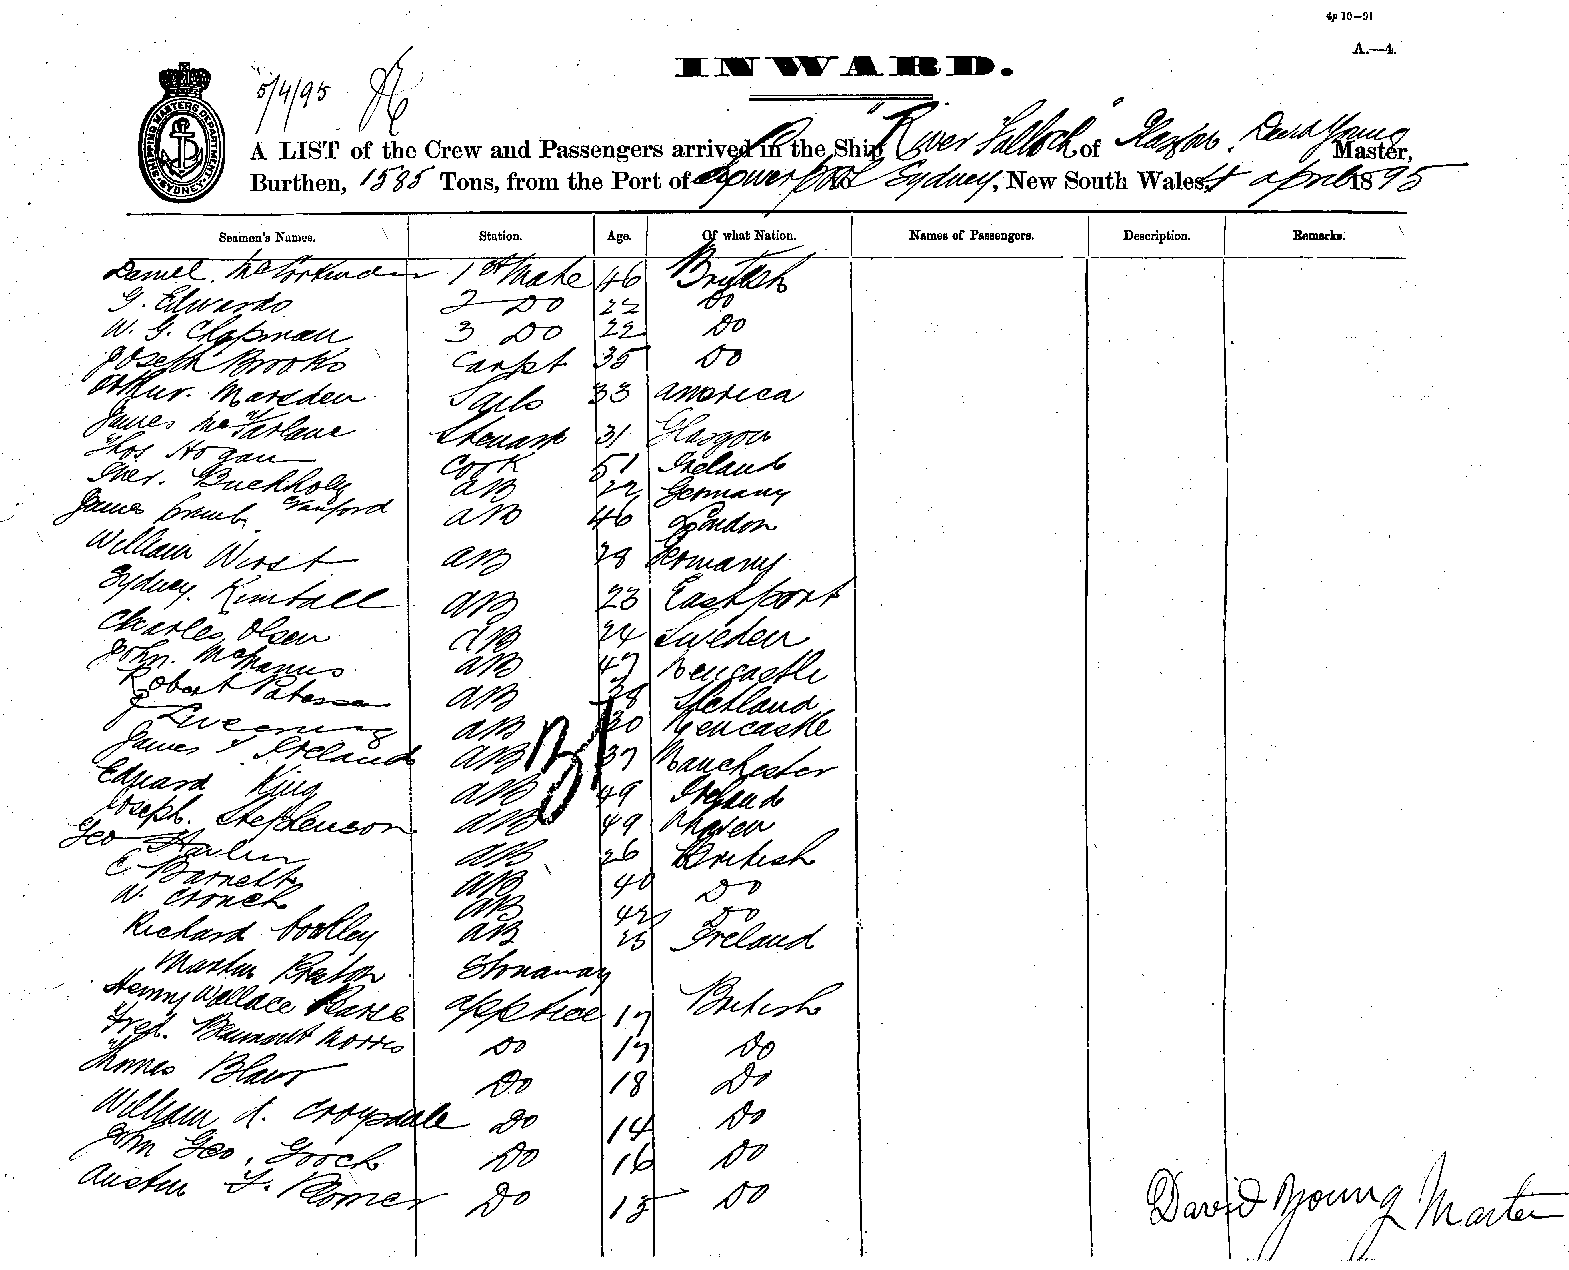 4p 10—91
A.—4.
INWARD.
5/4/95
SHIPPING MASTERS DEPARTMENT SYDNEY
A LIST of the Crew and Passengers arrived in the Ship "River Falloch" of Glasgow, David Young Master,
Burthen, 1585 Tons, from the Port of Liverpool to Sydney, New South Wales, April 1895
Seamen's Names. Station. Age. Of what Nation. Names of Passengers. Description. Remarks.
Daniel 1st Mate 46 British
G. Edwards 2 Do 22 Do
W. G. Chapman 3 Do 22 Do
Joseph Brooks Carpt 35 Do
Arthur Marsden Sails 33 America
James McFarlane Steward 31 Glasgow
Thos Hogan Cook 51 Ireland
Buckholz AB 22 Germany
James AB 46 London
William Wirst AB 28 Germany
Sydney Kimball AB 23 Eastport
Charles Olsen AB 24 Sweden
John McManus AB 47 Newcastle
Robert Paterson AB 38 Shetland
J AB 30 Newcastle
James Ireland AB 37 Manchester
Edward King AB 49 Ireland
Joseph Stephenson AB 49
Geo AB 26 British
C Barnett AB 40 Do
W. Crouch AB 42 Do
Richard AB 25 Ireland
31
Martin Stowaway
Henry Wallace Apptice 17 British
Fred. Beaumont Morris Do 17 Do
Thomas Do 18 Do
William A. Croysdale Do 14 Do
John Geo. Gooch Do 16 Do
Austin F. Do 15 Do
David Young Master